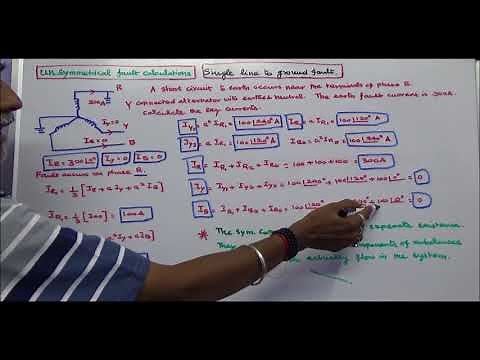 Un.Symmetrical fault calculations
Single line to ground fault.
A short circuit to earth occurs near the terminals of phase R.
Y connected alternator with earthed neutral. The earth fault current is 300A.
Calculate the seq. currents.
R
300A
IY=0
Y
IB=0
B
IR=300∠0° IY=0 IB=0
Fault occurs on phase R.
IR1 = 1/3 [IR + a IY + a² IB]
IR1 = 1/3 [300] = 100A
IY1 = a² IR1 = 100∠240° IB1 = a IR1 = 100∠120°
IY2 = a IR2 = 100∠120° IB2 = a² IR2 = 100∠240°
IR = IR1 + IR2 + IR0 = 100+100+100 = 300A
IY = IY1 + IY2 + IY0 = 100∠240° + 100∠120° + 100∠0° = 0
IB = IB1 + IB2 + IB0 = 100∠120° + 100∠0° = 0
* The Sym. separate existence.
components of unbalanced
actually flow in the system.